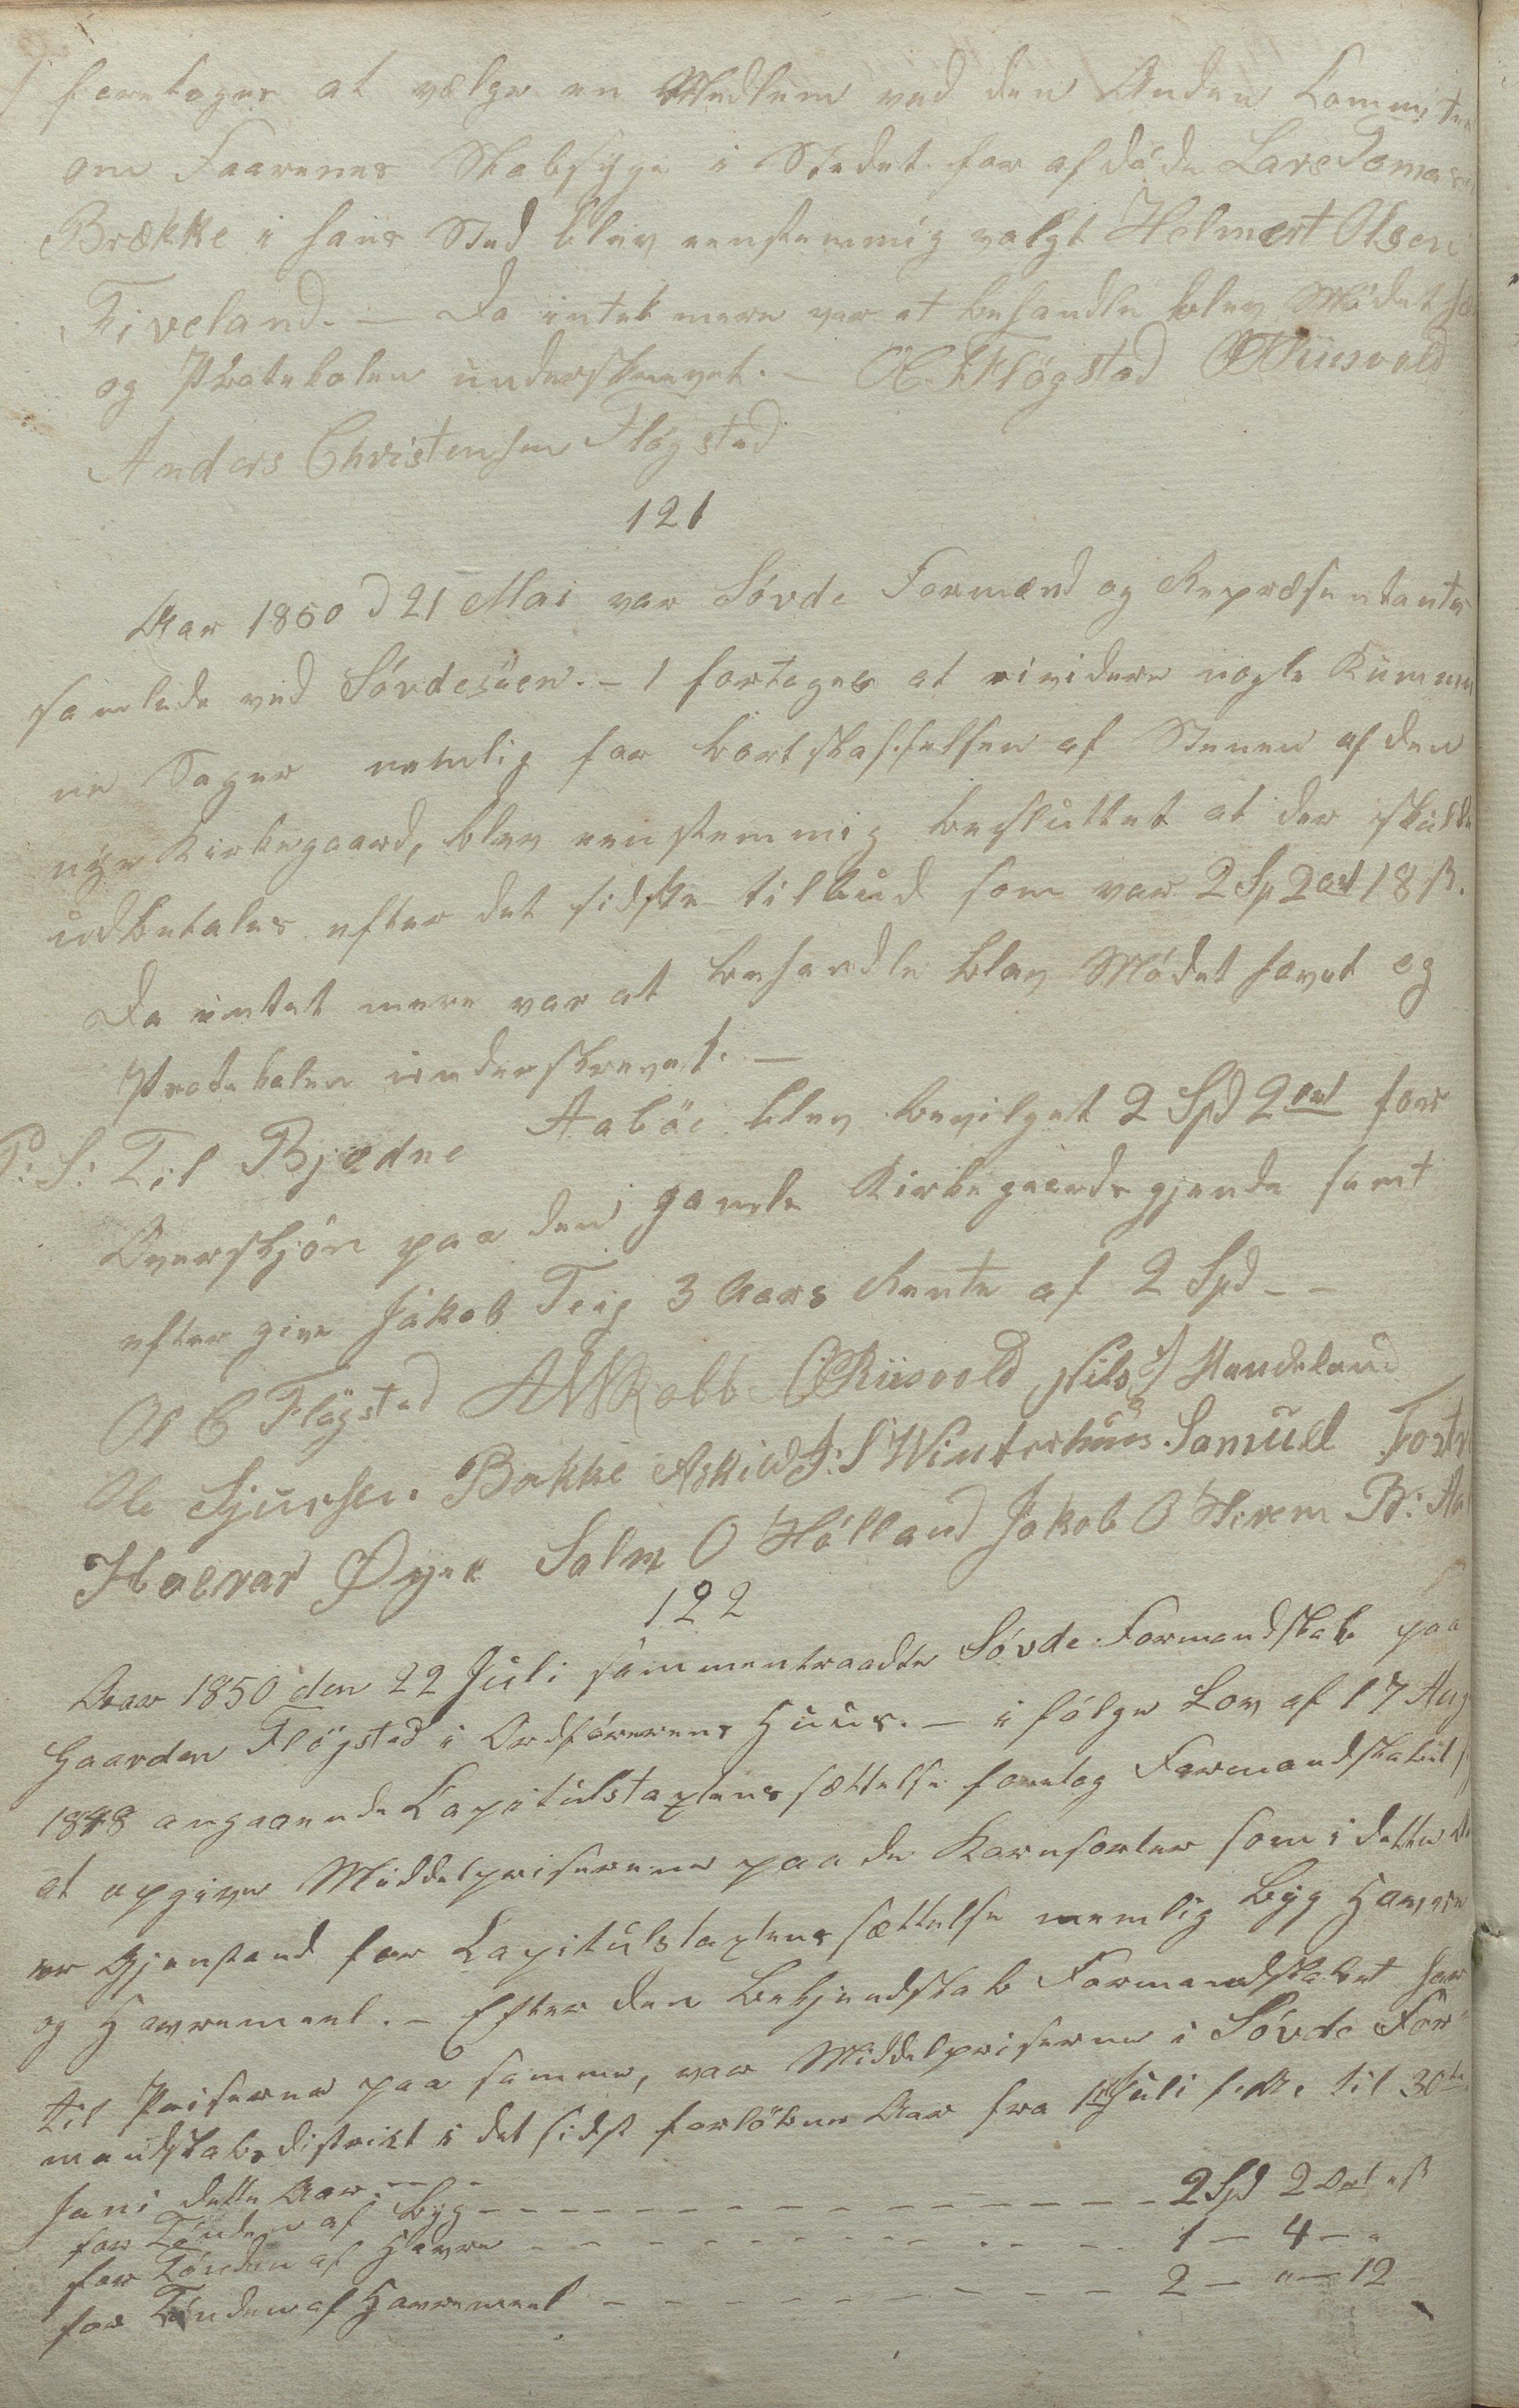 1 foretoges at vælge en Medlem ved den Anden Commite
om Faarenes Skabsyge i Stedet for afdøde Lars Tomas
Brække i hans Sted blev eenstemmig valgt Helmert Olsen
Fiveland. — Da intet mere var at behandle blev Mödet
og Protokolen underskrevet. — Fløgstad ORiisvold
Anders Christensen Fløgstad
121
Aar 1850 d 21 Mai var Søvde Formænd og Repræsentanter
samlede ved Søvdesøen. — 1 fortoges at rividere nogle Kummu
ne Sager nemlig for bortskaffelsen af Stenen af den
nye Kirkegaard, blev eenstemmig besluttet at der skulde
udbetales efter det sidste tilbud som var 2 Sp 2 ort 18 ß.
Da intet mere var at behandle blev Mödet hævet og
Protokolen underskrevet. —
P: S: Til Bjødne Aabøe blev bevilget 2 Spd 2 ort for
Overskjøn paa den gamle Kirkegaards gjerde samt
efter give Jakob Teig 3 Aars Rente af 2 Spd - -
Ol C Fløgstad Rabbe ORiisvold Nils Handeland
Ole Sjursen Bakke Askild J: S Winterhuus Samuel
Haavar Øyne Salm O Hølland Jakob O Herem B:
122
Aar 1850 den 22 Juli sammentraadte Søvde Formandskab paa
Gaarden Fløgstad i Ordførerens Huus. — i følge Lov af 17 Aug
1848 angaaende Capitulstaxtens sættelse foretog Formandskabet
at opgive Middelpriserene paa de Kornsorter som i dette
er Gjenstand for Capitulstaxtens sættelse nemlig Byg Havre
og Havremeel. — Efter den Bekjendskab Formandskabet har
til Priserne paa samme, var Middelpriserne i Søvde For-
mandskabsdistrikt i det sidst forløbne Aar fra 1ste Juli f. A. til 30te
Juni dette Aar. - - -
for Tønden af Byg - - - - - - - - - - - - 2 Spd 2 Ort " ß
for Tønden af Havre - - - - - - - - - - - 1 — 4 — "
for Tønden af Havremeel - - - - - - - - - 2 — " — 12